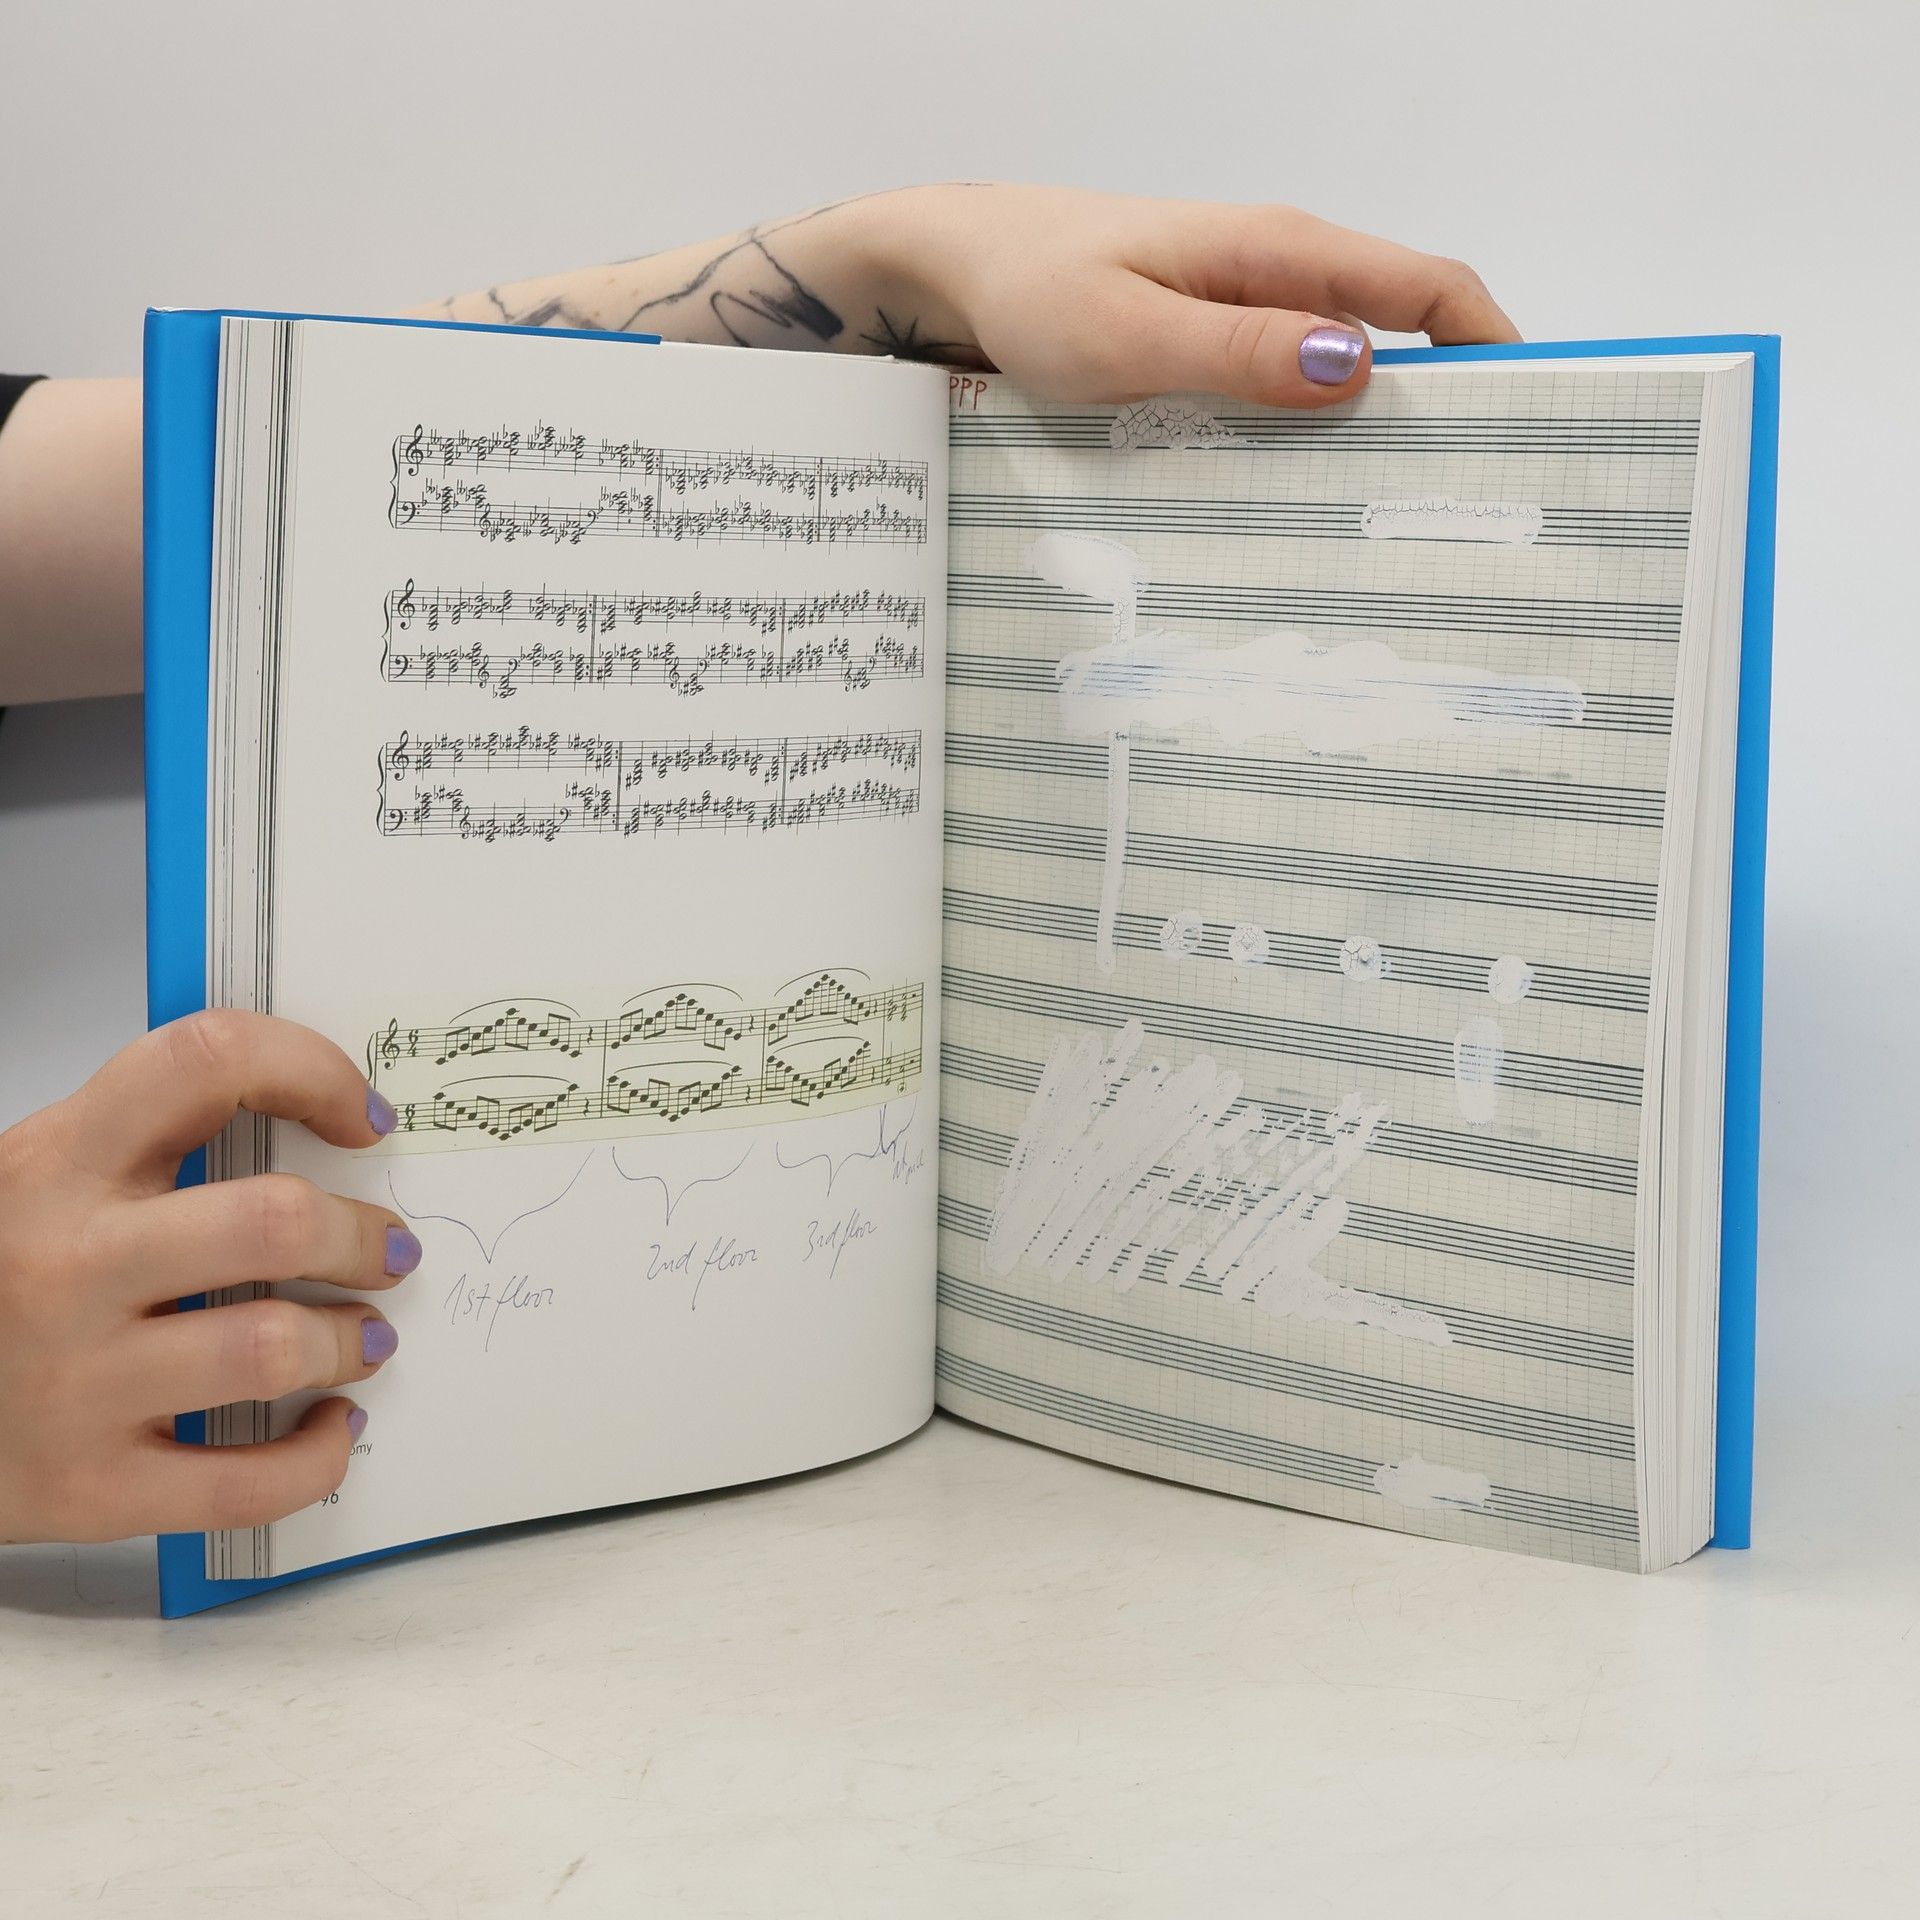 1st floor
2nd floor
3rd floor
omy
96
PPP